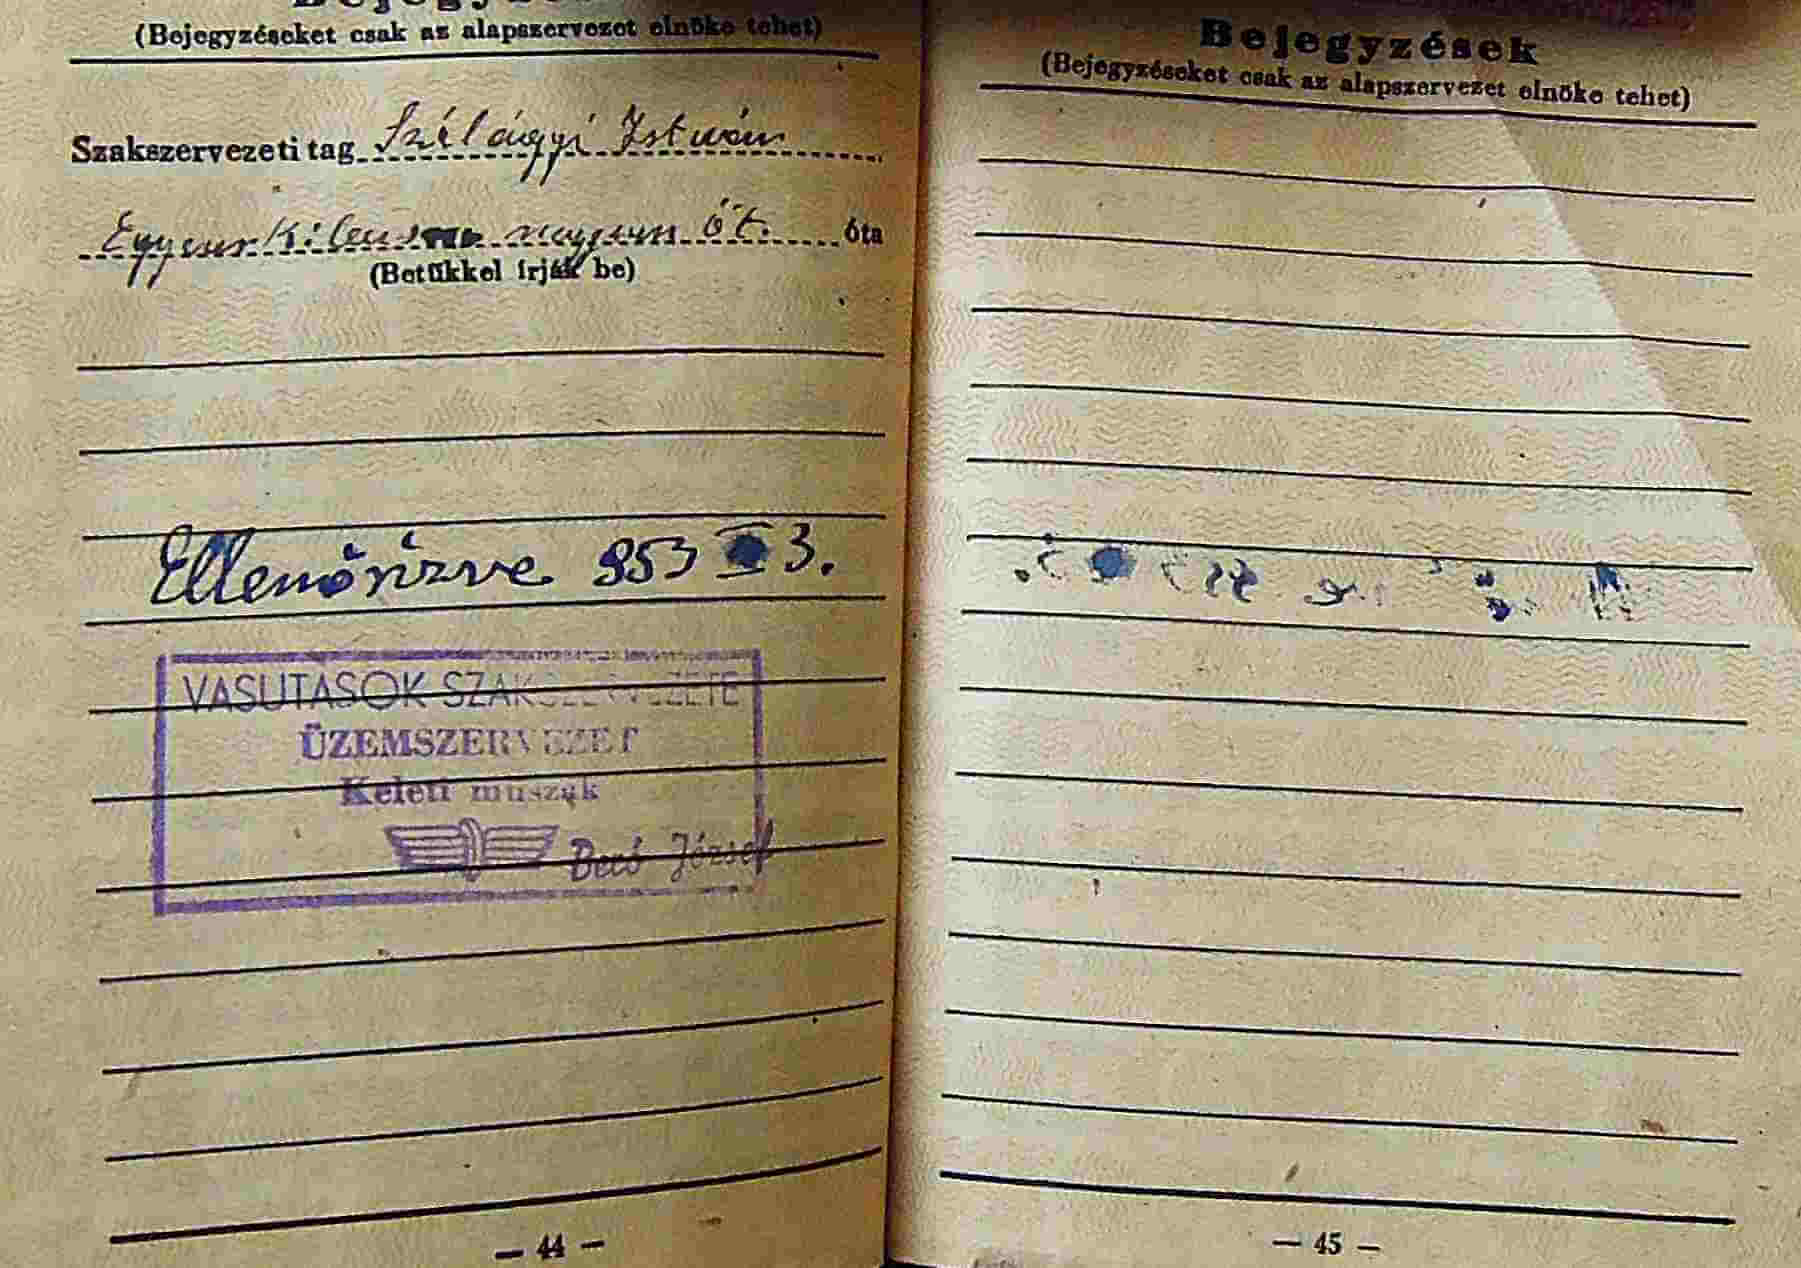 Bejegyzések
(Bejegyzéseket csak az alapszervezet elnöke tehet)
Szakszervezeti tag Szilágyi István
óta
(Betűkkel írják be)
Ellenőrizve 953 3.
VASUTASOK SZAKSZERVEZETE
ÜZEMSZERVEZET
Keleti műszak
József
— 44 —
Bejegyzések
(Bejegyzéseket csak az alapszervezet elnöke tehet)
— 45 —